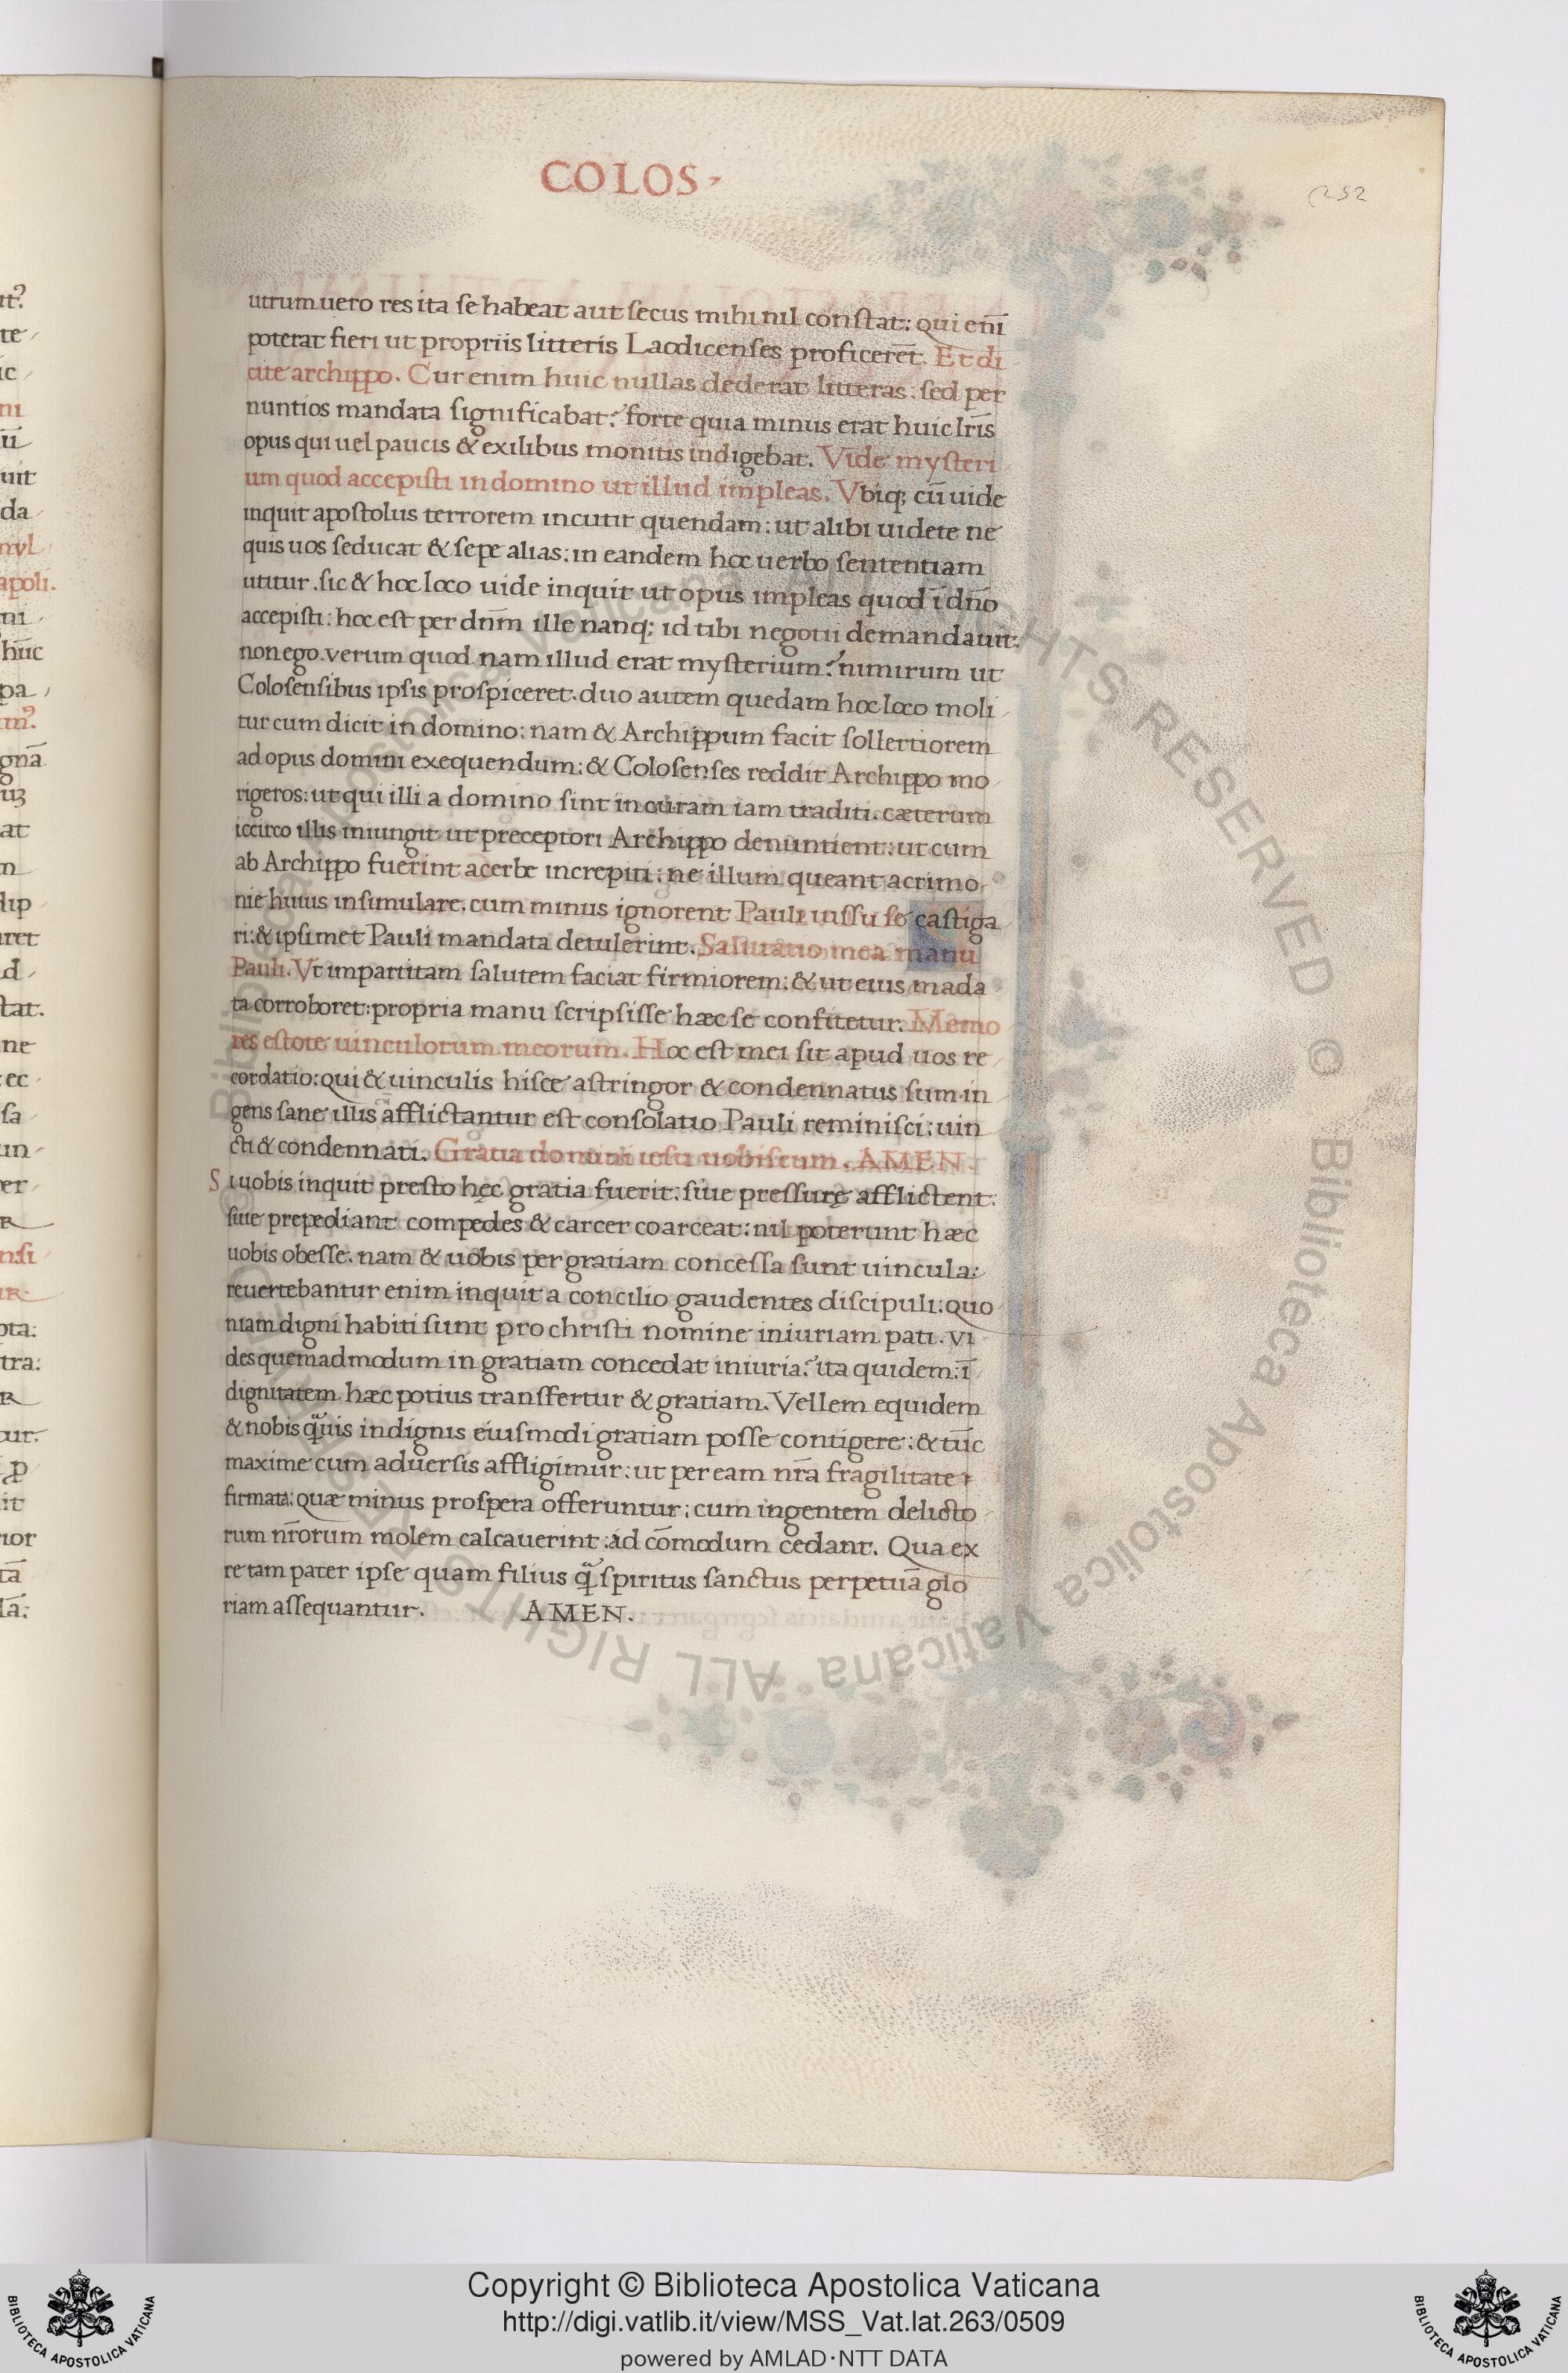 COLOS.
252
utrum uero res ita se habeat aut secus mihi nil constat: qui eni̅
poterat fieri ut propriis litteris Laodicenses proficere̅t. Et di
cite archippo. Cur enim huic nullas dederat litteras: sed per
nuntios mandata significabat? forte quia minus erat huic lr̅is
opus qui uel paucis & exilibus monitis indigebat. Vide mysteri
um quod accepisti in domino ut illud impleas. Vbiq; cu̅ uide
inquit apostolus terrorem incutit quendam: ut alibi uidete ne
quis uos seducat & sepe alias: in eandem hoc uerbo sententiam
utitur. sic & hoc loco uide inquit ut opus impleas quod i̅ dn̅o
accepisti: hoc est per dn̅m ille nanq; id tibi negotii demandauit:
non ego. verum quod nam illud erat mysterium? nimirum ut
Colosensibus ipsis prospiceret. duo autem quedam hoc loco moli
tur cum dicit in domino: nam & Archippum facit sollertiorem
ad opus domini exequendum: & Colosenses reddit Archippo mo
rigeros: ut qui illi a domino sint in curam iam traditi. cæterum
iccirco illis iniungit ut preceptori Archippo denuntient: ut cum
ab Archippo fuerint acerbe increpiti: ne illum queant acrimo
nie huius insimulare. cum minus ignorent Pauli iussu se castiga
ri: & ipsimet Pauli mandata detulerint. Salutatio mea manu
Pauli. Vt impartitam salutem faciat firmiorem: & ut eius mada
ta corroboret: propria manu scripsisse hæc se confitetur. Memo
res estote uinculorum meorum. Hoc est mei sit apud uos re
cordatio: qui & uinculis hisce astringor & condennatus sum. in
gens sane illis afflictantur est consolatio Pauli reminisci: uin
cti & condennati. Gratia domini iesu uobiscum. AMEN.
Si uobis inquit presto hęc gratia fuerit: siue pressurę afflictent:
siue prepediant compedes & carcer coarceat: nil poterunt hæc
uobis obesse. nam & uobis per gratiam concessa sunt uincula:
reuertebantur enim inquit a concilio gaudentes discipuli: quo
niam digni habiti sunt pro christi nomine iniuriam pati. vi
des quemadmodum in gratiam concedat iniuria? ita quidem: i̅
dignitatem hæc potius transfertur & gratiam. Vellem equidem
& nobis quãuis indignis eiusmodi gratiam posse contigere: & tu̅c
maxime cum aduersis affligimur: ut per eam nr̅a fragilitate
firmata: quæ minus prospera offeruntur: cum ingentem delicto
rum nr̅orum molem calcauerint: ad co̅modum cedant. Qua ex
re tam pater ipse quam filius q̃ spiritus sanctus perpetua̅ glo
riam assequantur. AMEN.
Copyright © Biblioteca Apostolica Vaticana
http://digi.vatlib.it/view/MSS_Vat.lat.263/0509
powered by AMLAD·NTT DATA
BIBLIOTECA APOSTOLICA VATICANA
BIBLIOTECA APOSTOLICA VATICANA
Biblioteca Apostolica Vaticana ALL RIGHTS RESERVED © Biblioteca Apostolica Vaticana ALL RIGHTS RESERVED ©